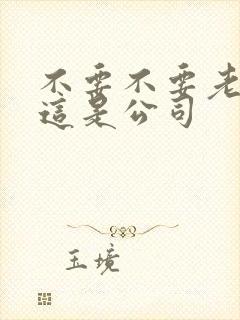 不要不要老
這是公司
玉境